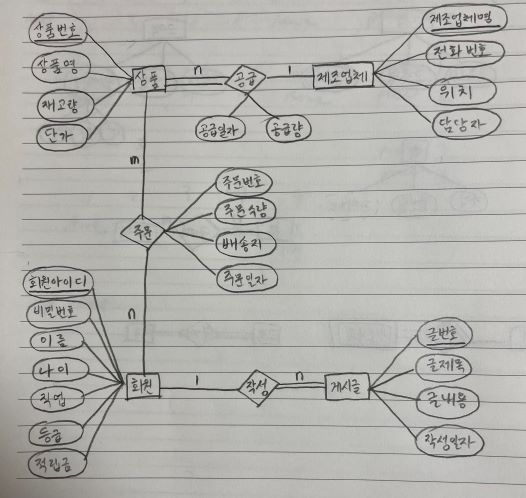 상품번호
상품명
재고량
단가
상품
n
공급
1
제조업체
공급일자
공급량
제조업체명
전화번호
위치
담당자
m
주문
주문번호
주문수량
배송지
주문일자
n
회원아이디
비밀번호
이름
나이
직업
등급
적립금
회원
1
작성
n
게시글
글번호
글제목
글내용
작성일자